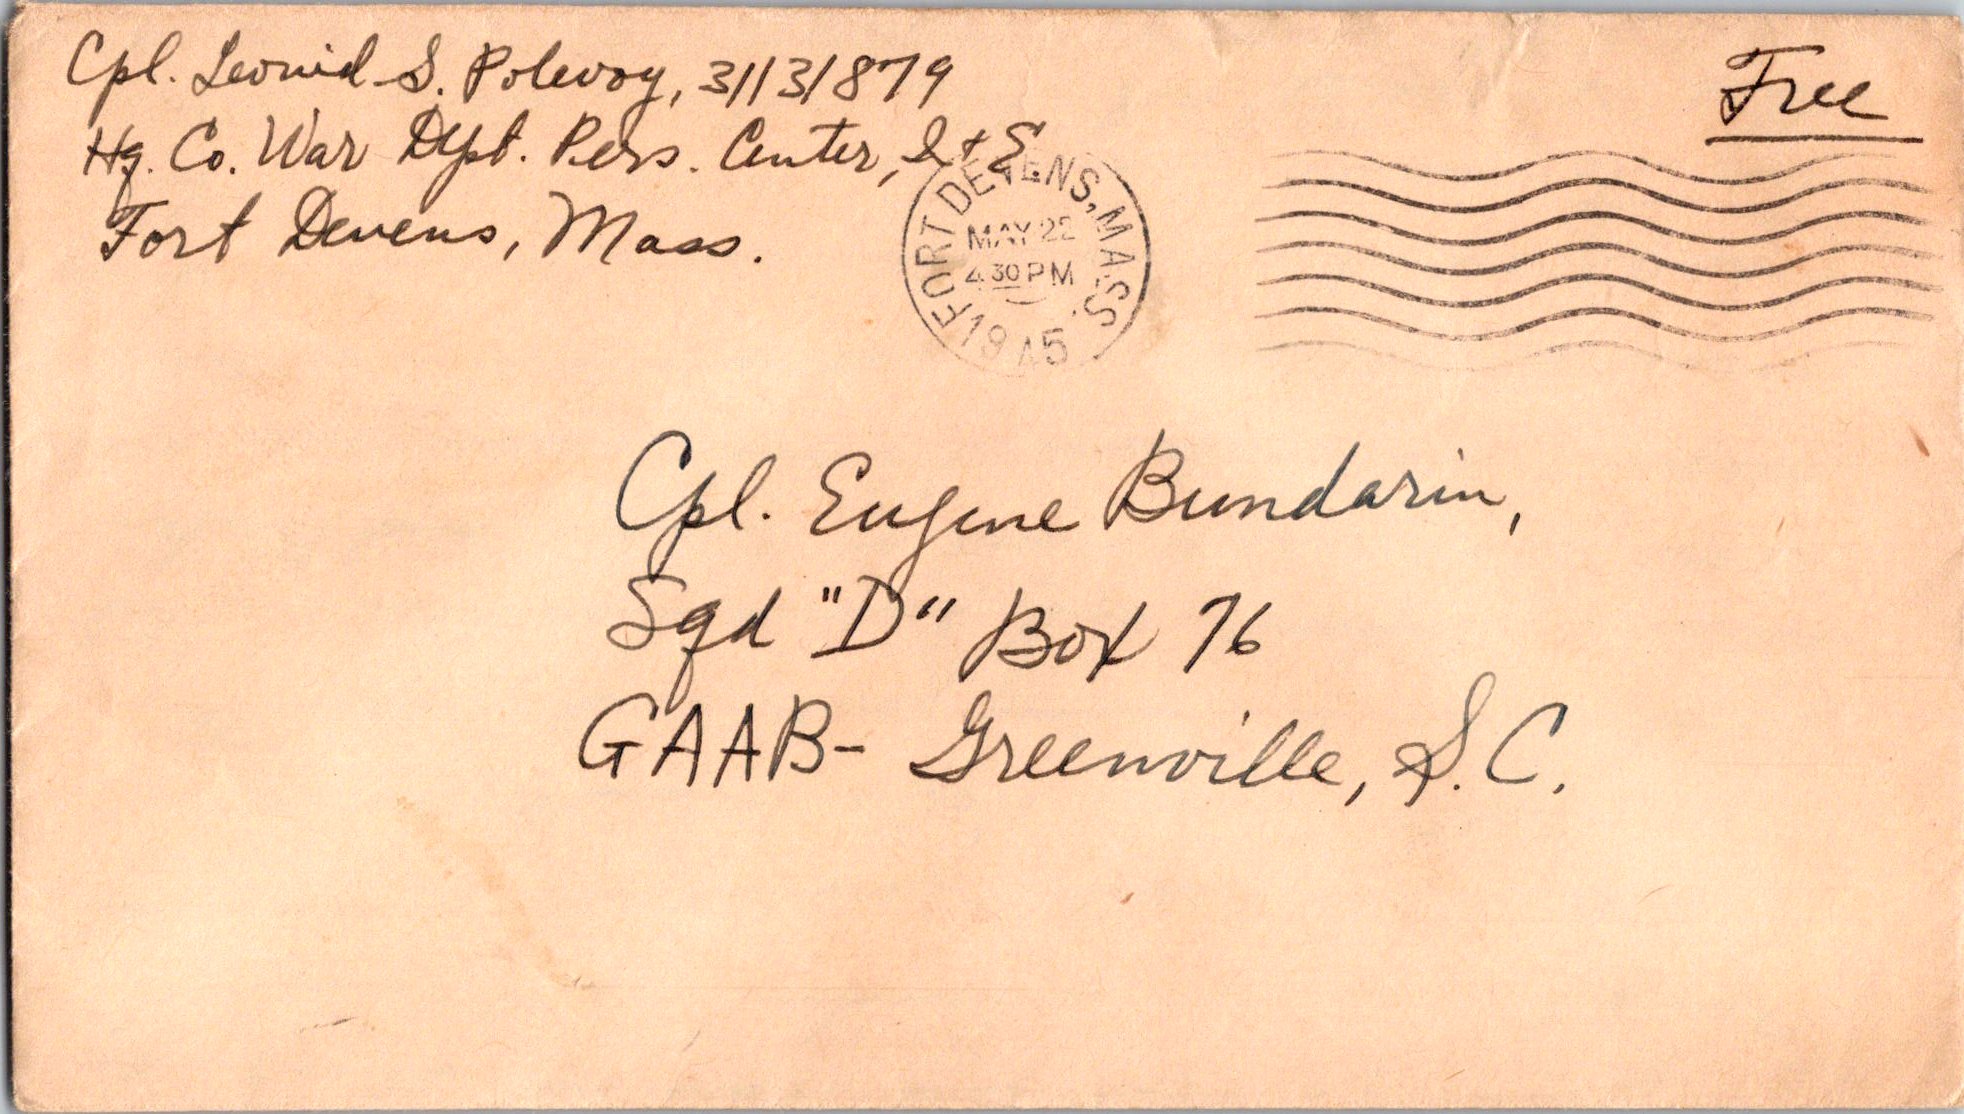 Cpl. Leonid S. Polevoy, 31131879
Hq. Co. War Dept. Pers. Center, I + E
Fort Devens, Mass.
Free
FORT DEVENS, MASS.
MAY 22
4 30 PM
1945
Cpl. Eugene Bundarin,
Sqd "D" Box 76
GAAB- Greenville, S.C.